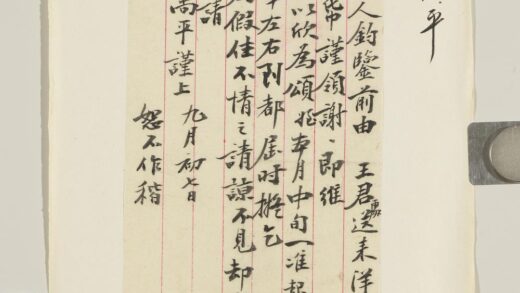 平
人鈞鑒前由 王君送来洋
謹領謝、即維
以欣為頌兹本月中旬一准起
左右到都屆時擬乞
假住不情之請諒不見却
請
尚平謹上 九月初七日
恕不作稽